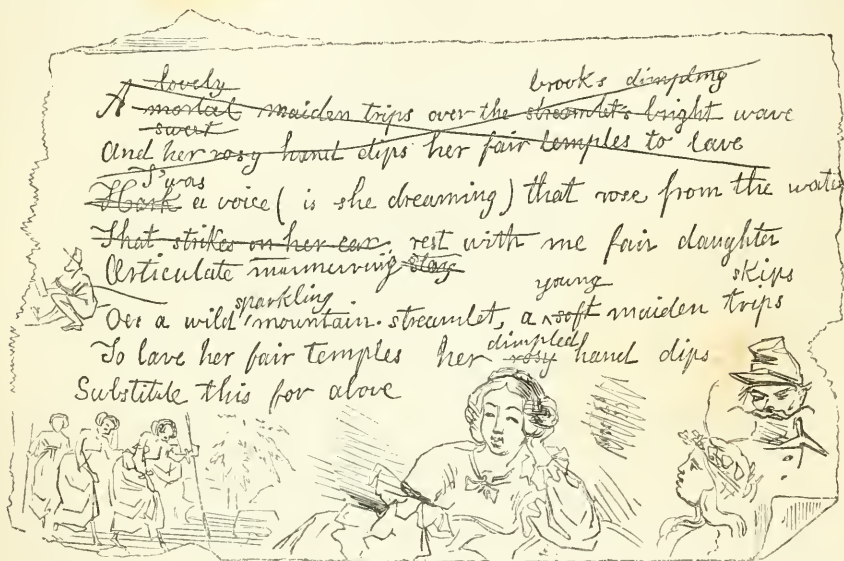 lovely brooks dimpling
A mortal maiden trips over the streamlet's bright wave
sweet
And her rosy hand dips her fair temples to lave
T'was
Hark a voice ( is she dreaming ) that rose from the wate
That strikes on her ear, rest with me fair daughter
Articulate murmurring stay
sparkling young skips
Oer a wild mountain streamlet, a soft maiden trips
dimpled
To lave her fair temples her rosy hand dips
Substitute this for above